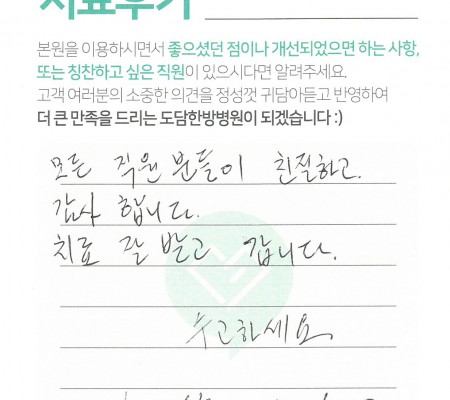 치료후기
본원을 이용하시면서 좋으셨던 점이나 개선되었으면 하는 사항,
또는 칭찬하고 싶은 직원이 있으시다면 알려주세요.
고객 여러분의 소중한 의견을 정성껏 귀담아듣고 반영하여
더 큰 만족을 드리는 도담한방병원이 되겠습니다 :)
모든 직원 분들이 친절하고.
감사 합니다.
치료 잘 받고 갑니다.
수고하세요.